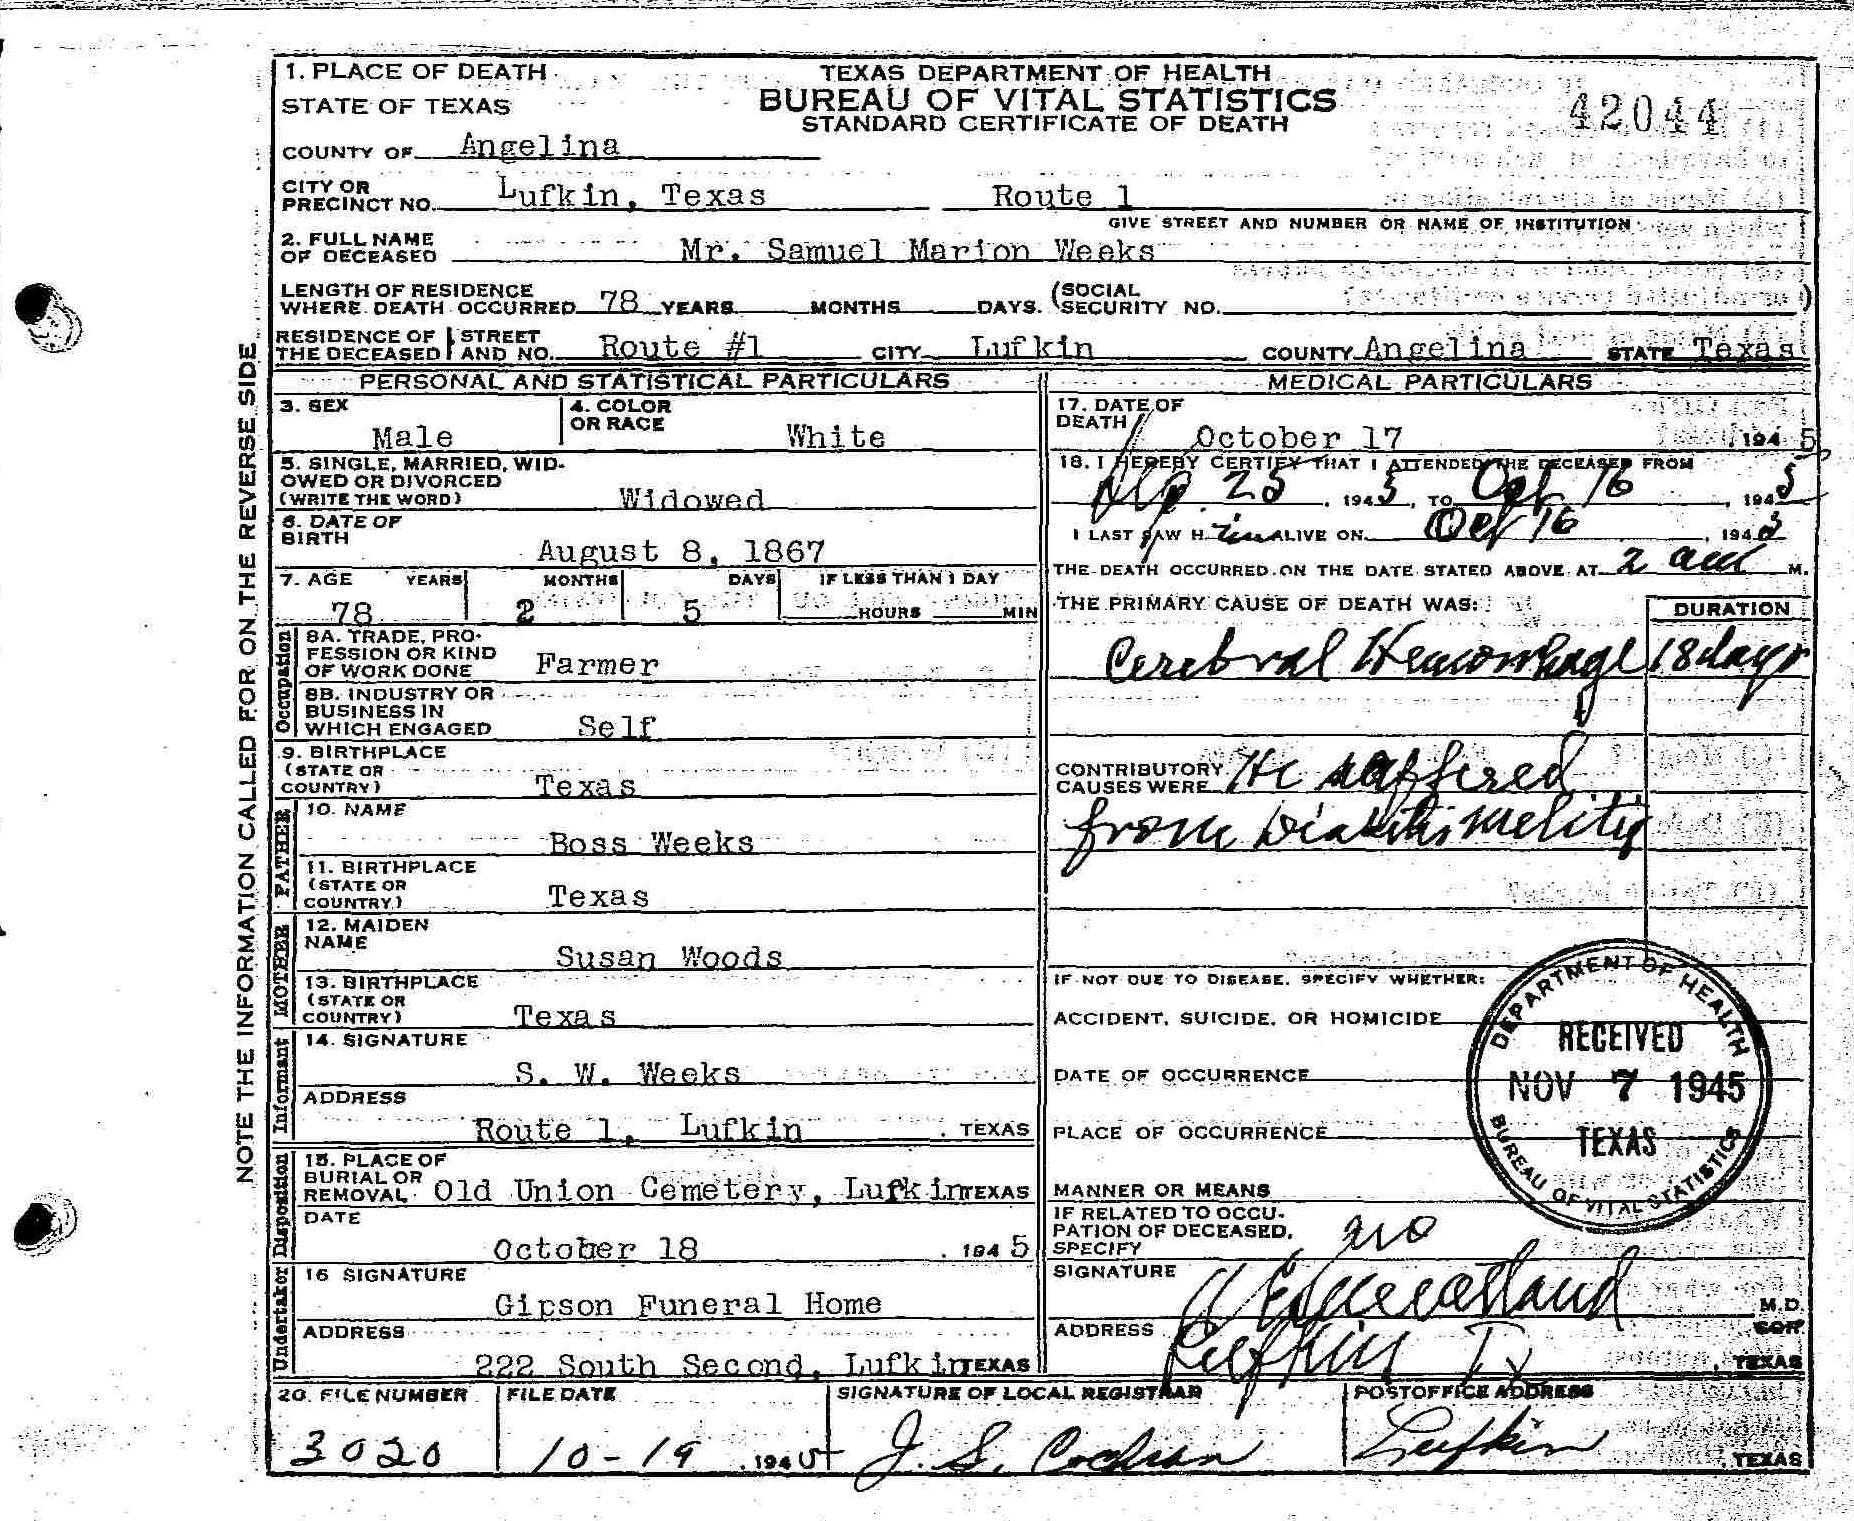 1. PLACE OF DEATH
STATE OF TEXAS
TEXAS DEPARTMENT OF HEALTH
BUREAU OF VITAL STATISTICS
STANDARD CERTIFICATE OF DEATH
42044
COUNTY OF Angelina
CITY OR PRECINCT NO. Lufkin, Texas Route 1
GIVE STREET AND NUMBER OR NAME OF INSTITUTION
2. FULL NAME OF DECEASED Mr. Samuel Marion Weeks
LENGTH OF RESIDENCE WHERE DEATH OCCURRED 78 YEARS MONTHS DAYS. (SOCIAL SECURITY NO. )
RESIDENCE OF THE DECEASED STREET AND NO. Route #1 CITY Lufkin COUNTY Angelina STATE Texas
NOTE THE INFORMATION CALLED FOR ON THE REVERSE SIDE
PERSONAL AND STATISTICAL PARTICULARS
3. SEX Male
4. COLOR OR RACE White
5. SINGLE, MARRIED, WIDOWED OR DIVORCED (WRITE THE WORD) Widowed
6. DATE OF BIRTH August 8, 1867
7. AGE YEARS MONTHS DAYS IF LESS THAN 1 DAY
78 2 5 HOURS MIN
Occupation
8A. TRADE, PROFESSION OR KIND OF WORK DONE Farmer
8B. INDUSTRY OR BUSINESS IN WHICH ENGAGED Self
9. BIRTHPLACE (STATE OR COUNTRY) Texas
FATHER
10. NAME Boss Weeks
11. BIRTHPLACE (STATE OR COUNTRY) Texas
MOTHER
12. MAIDEN NAME Susan Woods
13. BIRTHPLACE (STATE OR COUNTRY) Texas
Informant
14. SIGNATURE S. W. Weeks
ADDRESS Route 1, Lufkin , TEXAS
Disposition
15. PLACE OF BURIAL OR REMOVAL Old Union Cemetery, Lufkin TEXAS
DATE October 18 , 1945
Undertaker
16 SIGNATURE Gipson Funeral Home
ADDRESS 222 South Second, Lufkin TEXAS
MEDICAL PARTICULARS
17. DATE OF DEATH October 17 , 1945
18. I HEREBY CERTIFY THAT I ATTENDED THE DECEASED FROM
25 , 1945, TO Oct 16 , 1945
I LAST SAW H im ALIVE ON Oct 16 , 1945
THE DEATH OCCURRED ON THE DATE STATED ABOVE AT 2 am M.
THE PRIMARY CAUSE OF DEATH WAS: DURATION
Cerebral Hemorrhage 18 days
CONTRIBUTORY CAUSES WERE He suffered
from Diabetis melitis
IF NOT DUE TO DISEASE, SPECIFY WHETHER:
ACCIDENT, SUICIDE, OR HOMICIDE
DATE OF OCCURRENCE
PLACE OF OCCURRENCE
MANNER OR MEANS
DEPARTMENT OF HEALTH
RECEIVED
NOV 7 1945
TEXAS
BUREAU OF VITAL STATISTICS
IF RELATED TO OCCUPATION OF DECEASED, SPECIFY no
SIGNATURE M.D.
ADDRESS Lufkin Tx , TEXAS
20. FILE NUMBER FILE DATE SIGNATURE OF LOCAL REGISTRAR POSTOFFICE ADDRESS
3020 10-19 , 1945 J. S. Cochran Lufkin , TEXAS